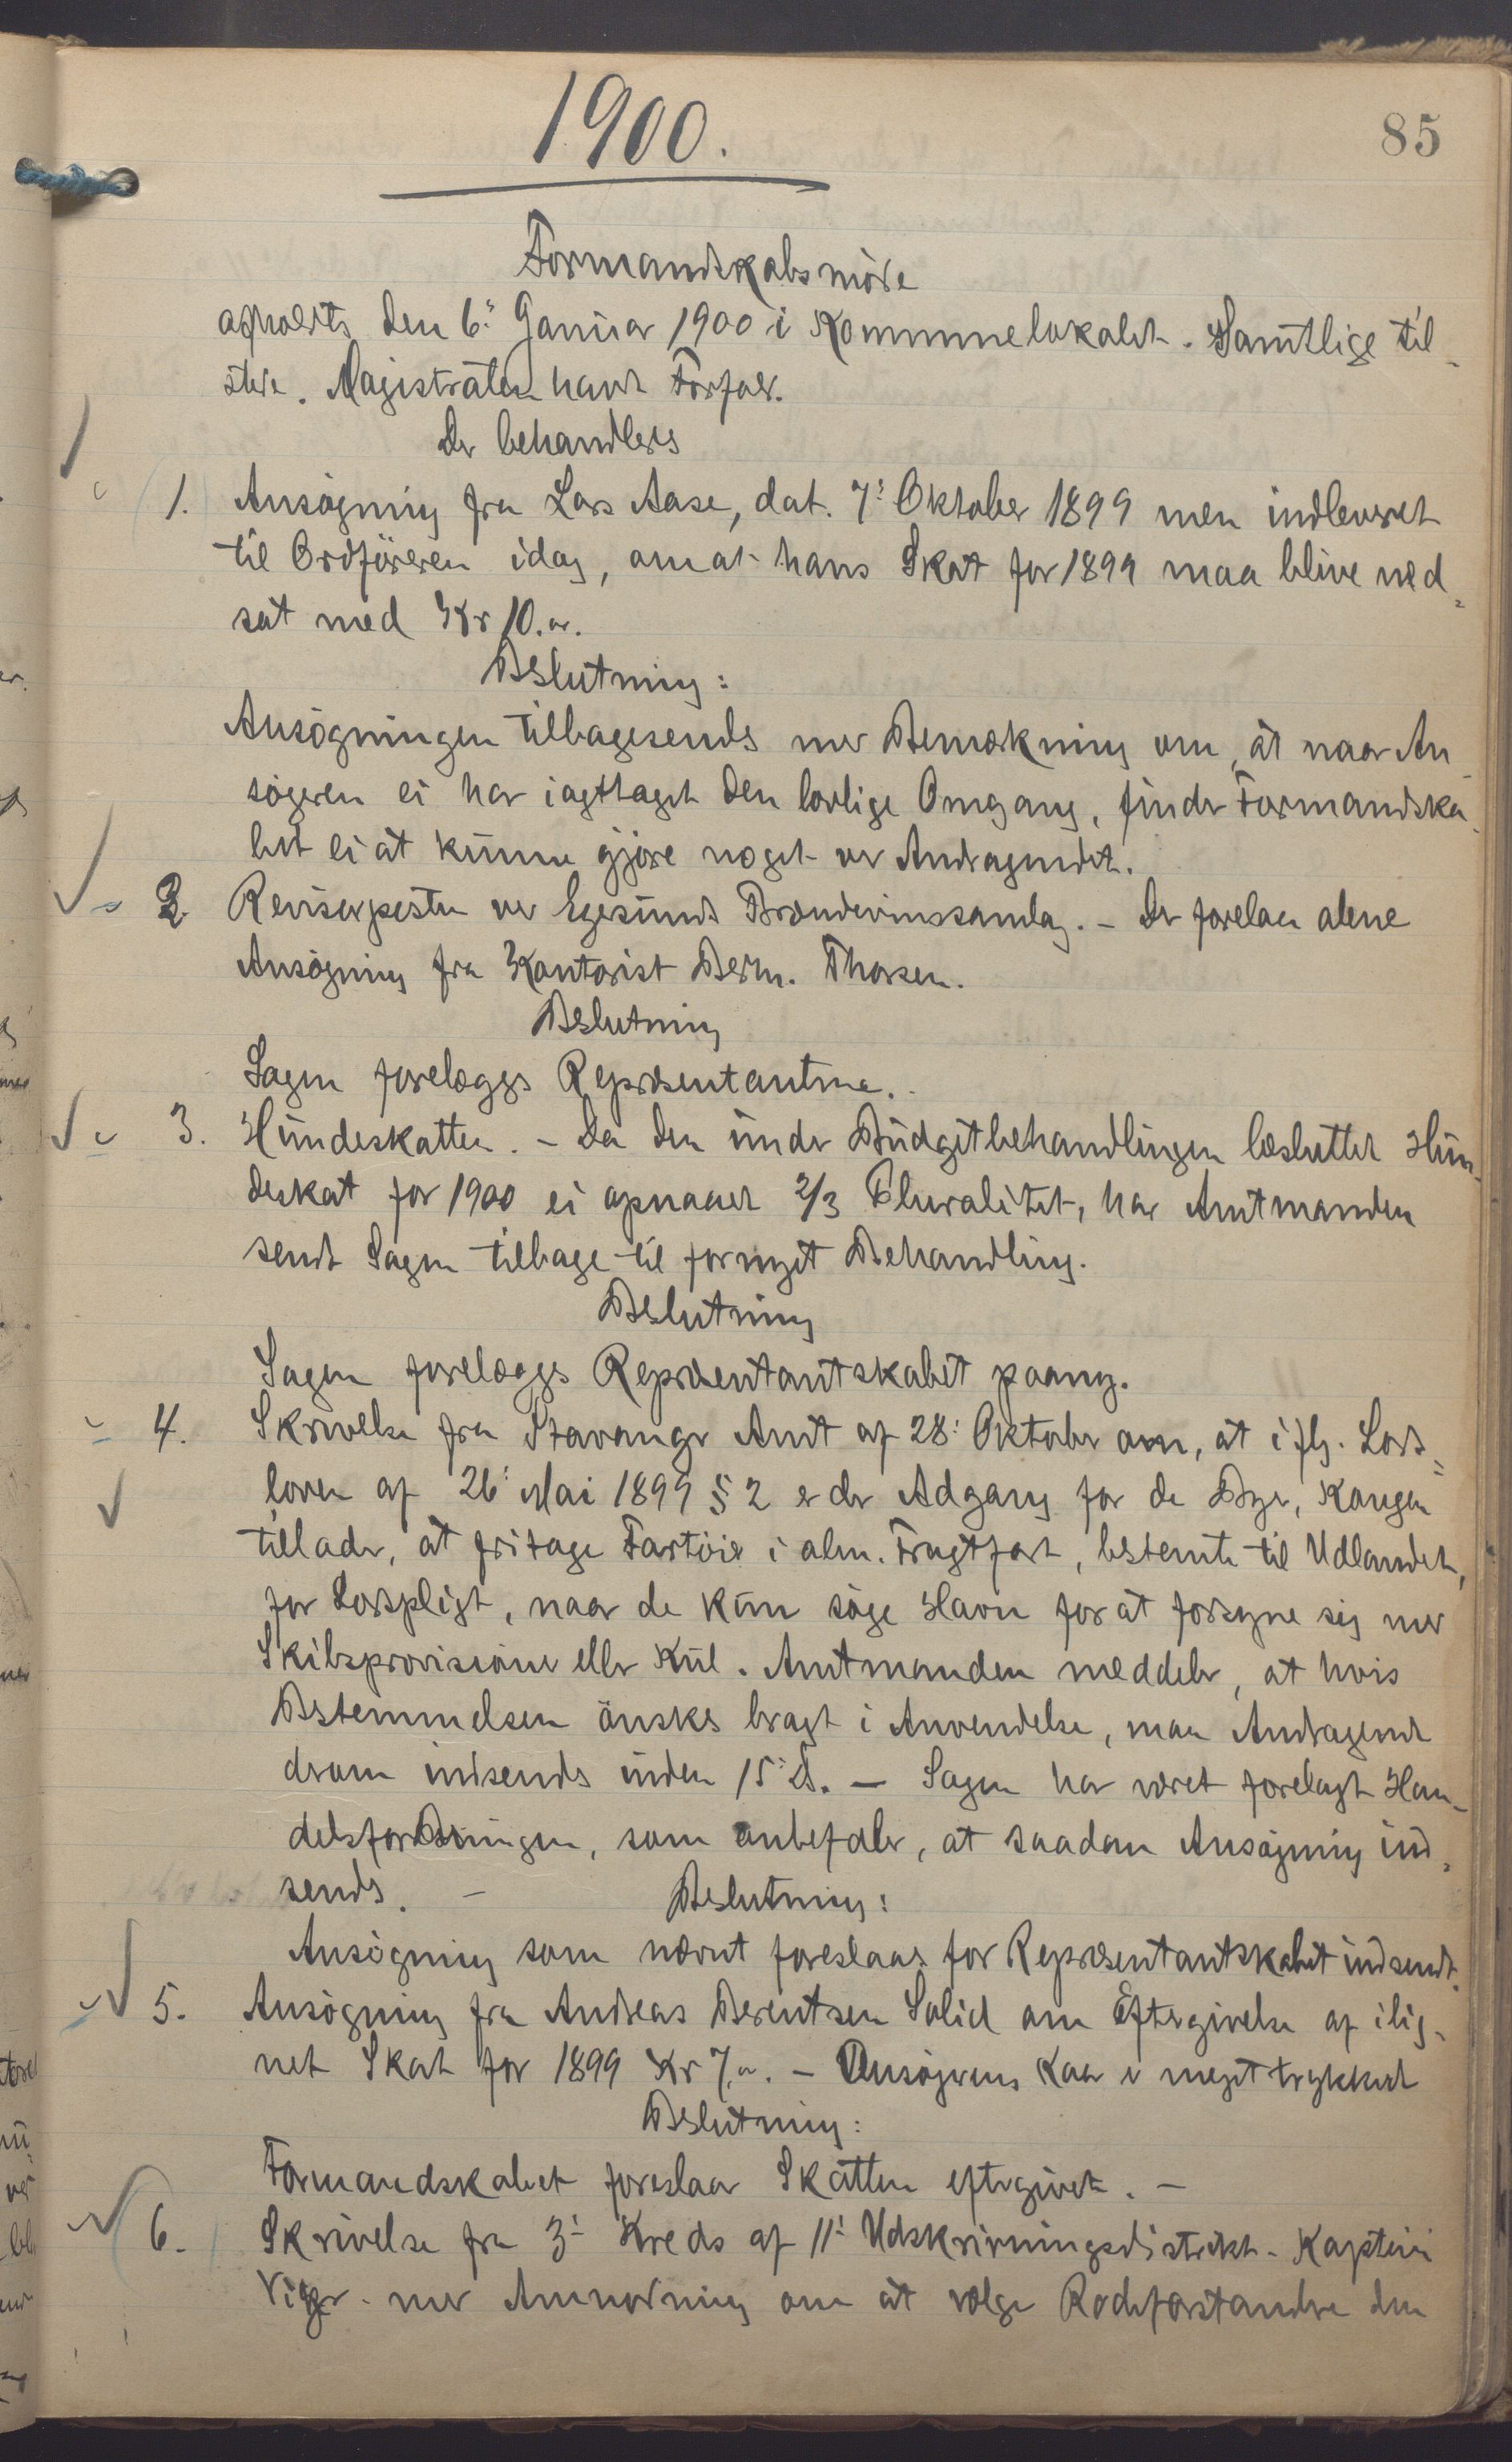 1900.
85
Formandskabsmöde
afholdts den 6: Januar 1900 i Kommunelokalet. Samtlige til-
stede. Magistraten havde Forfald.
Der behandledes
1. Ansögning fra Lars Aase, dat. 7: Oktober 1899 men indleveret
til Ordföreren idag, om at hans Skat for 1899 maa blive ned-
sat med Kr 10.
Beslutning:
Ansögningen tilbagesendes med Bemærkning om, at naar An-
sögeren ei har iagttaget den lovlige Omgang, finder Formandska-
bet ei at kunne gjöre noget ved Andragendet.
2 Revisorposten ved Egersunds Brændevinssamlag. - Der forelaa alene
Ansögning fra Kontorist Bern. Thorsen.
Beslutning
Sagen forelægges Repræsentanterne.
3. Hundeskatten. - Da den under Budgetbehandlingen besluttet Hun-
deskat for 1900 ei opnaaed 2/3 Pluralitet, har Amtmanden
sendt Sagen tilbage til fornyet Behandling.
Beslutning
Sagen forelægges Repræsentantskabet paany.
4. Skrivelse fra Stavanger Amt af 28: Oktober om, at iflg. Lods-
loven af 26: Mai 1899 § 2 er der Adgang for de Byer, Kongen
tillader, at fritage Fartöier i alm. Fragtfart, bestemte til Udlandet,
for Lodspligt, naar de kun söge Havn for at forsyne sig med
Skibsprovisioner eller Kul. Amtmanden meddeler, at hvis
Bestemmelsen önskes bragt i Anvendelse, maa Andragende
derom indsendes inden 15: ds. - Sagen har været forelagt Han-
delsforeningen, som anbefaler, at saadan Ansögning ind-
sendes. - Beslutning:
Ansögning som nævnt foreslaaes for Repræsentantskabet indsendt.
5. Ansögning fra Andreas Berentsen Solid om Eftergivelse af ilig-
net Skat for 1899 Kr 7. - Ansögerens Kaar er meget trykket
Beslutning:
Formandskabet foreslaar Skatten eftergivet. -
6. Skrivelse fra 3: Kreds af 11: Udskrivningsdistrikt - Kaptein
- med Anmodning om at vælge Rodeforstandere den